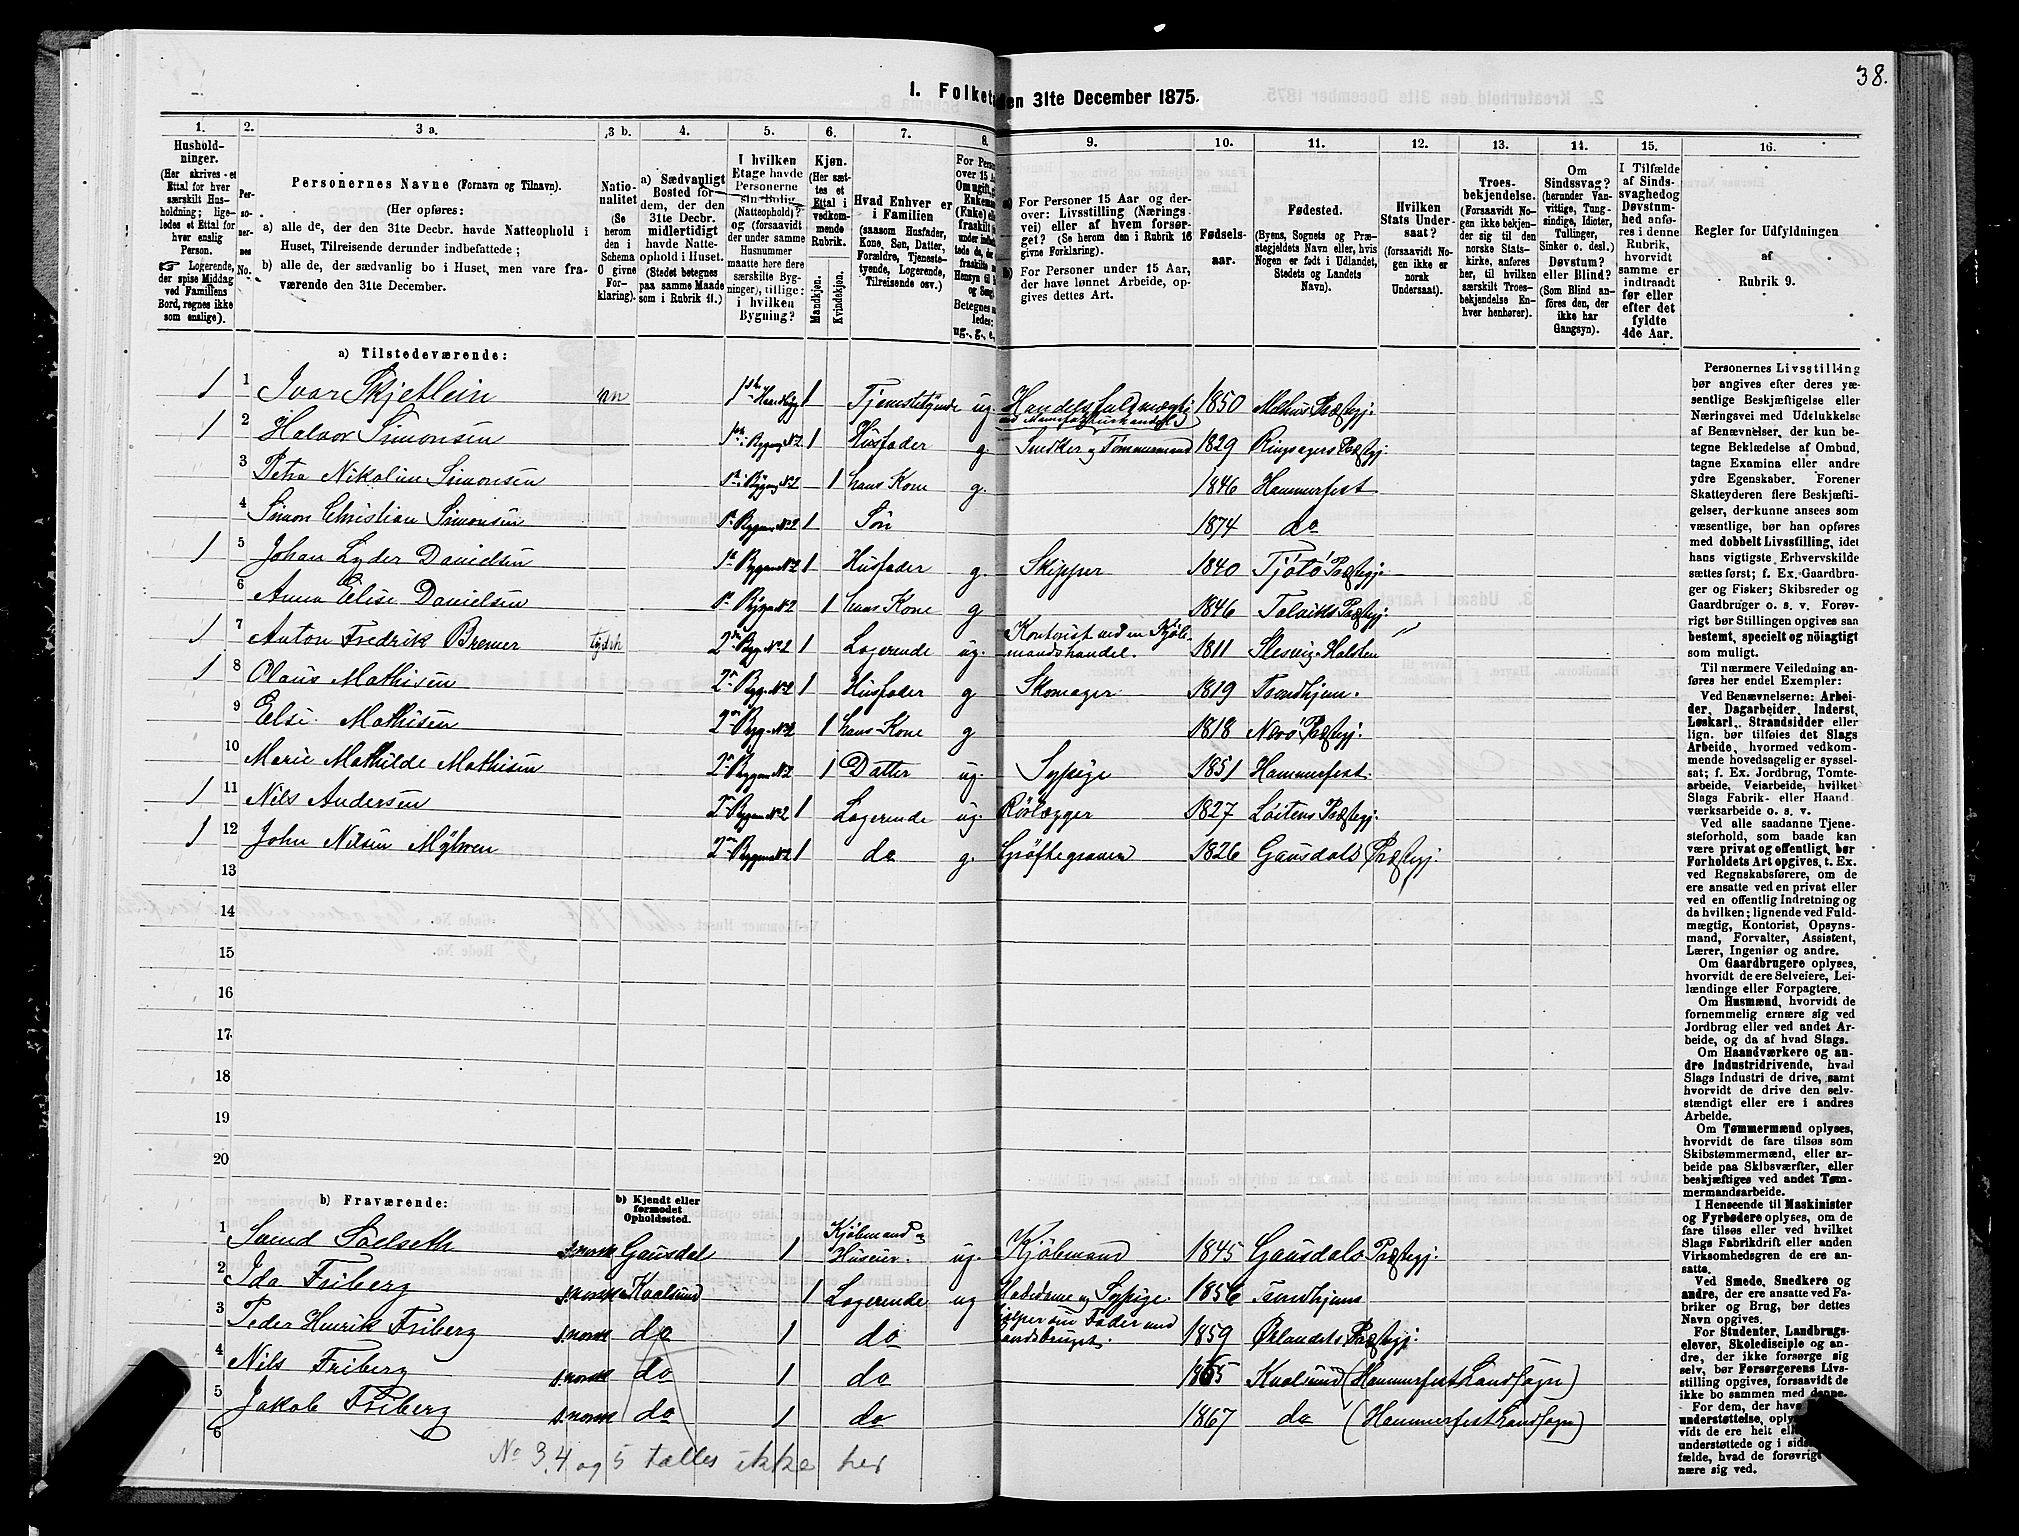 38.
1. Folket
en 31te December 1875.
1. 2. 3 a. 3 b. 4. 5. 6. 7. 8. 9. 10. 11. 12. 13. 14. 15. 16.
Hushold-
ninger.
(Her skrives et
Ettal for hver
særskilt Hus-
holdning; lige-
ledes et Ettal for
hver enslig
Person.
☞ Logerende,
der spise Middag
ved Familiens
Bord, regnes ikke
som enslige).
Per-
so-
ner-
nes
No.
Personernes Navne (Fornavn og Tilnavn).
(Her opføres:
a) alle de, der den 31te Decbr. havde Natteophold i
Huset, Tilreisende derunder indbefattede;
b) alle de, der sædvanlig bo i Huset, men vare fra-
værende den 31te December.
Natio-
nalitet
(Se
herom
den i
Schema
O givne
For-
klaring).
a) Sædvanligt
Bosted for
dem, der den
31te Decbr.
midlertidigt
havde Natte-
ophold i Huset.
(Stedet betegnes
paa samme Maade
som i Rubrik 11.)
I hvilken
Etage havde
Personerne
sin Bolig
(Natteophold)?
og (forsaavidt
der under samme
Husnummer
maatte høre flere
særskilte Byg-
ninger), tillige:
i hvilken
Bygning?
Kjøn.
(Her sæt-
tes et
Ettal i
vedkom-
mende
Rubrik.
Mandkjøn.
Kvindekjøn.
Hvad Enhver er
i Familien
(saasom Husfader,
Kone, Søn, Datter,
Forældre, Tjeneste-
tyende, Logerende,
Tilreisende osv.)
For Perso
over 15 A
Om ugift, g
Enkema
(Enke) elle
fraskilt s
under indb
tede de, de
fraskilte
Hensyn til
og Seng
Betegnes s
ledes:
ug., g., e.,
a) For Personer 15 Aar og der-
over: Livsstilling (Nærings-
vei) eller af hvem forsør-
get? (Se herom den i Rubrik 16
givne Forklaring).
b) For Personer under 15 Aar,
der have lønnet Arbeide, op-
gives dettes Art.
Fødsels-
aar.
Fødested.
(Byens, Sognets og Præ-
stegjeldets Navn eller, hvis
Nogen er født i Udlandet,
Stedets og Landets
Navn).
Hvilken
Stats Under-
saat?
(forsaavidt No-
gen ikke er
norsk
Undersaat).
Troes-
bekjendelse.
(Forsaavidt No-
gen ikke bekjen-
der sig til den
norske Stats-
kirke, anføres
her, til hvilken
særskilt Troes-
bekjendelse En-
hver henhører).
Om
Sindssvag?
(herunder Van-
vittige, Tung-
sindige, Idioter,
Tullinger,
Sinker o. desl.)
Døvstum?
eller Blind?
(Som Blind an-
føres den, der
ikke har
Gangsyn).
I Tilfælde
af Sinds-
svaghed og
Døvstum-
hed anfø-
res i denne
Rubrik,
hvorvidt
samme er
indtraadt
før eller
efter det
fyldte
4de Aar.
Regler for Udfyldningen
af
Rubrik 9.
a) Tilstedeværende:
1 1 Ivar Skjetlein nn 1ste 1 Tjenstetyende ug. Handelsfuldmægtig 1850 Mælhus Præstgj:
1 2 Halvor Simonsen 1ste i Bygng No 2 1 Husfader g. Snedker og Tømmermand 1829 Ringsagers Præstgj:
3 Petra Nikoline Simonsen 1ste i Bygng No 2 1 hans Kone g. 1846 Hammerfest
4 Simon Christian Simonsen 1ste Bygng No 2 1 Søn 1874 do
1 5 Johan Lyder Danielsen 1ste Bygng No 2 1 Husfader g. Skipper 1840 Tjötö Præstgj:
6 Anna Elise Danielsen 1ste Bygng No 2 1 hans Kone g 1846 Talviks Præstgj:
1 7 Anton Fredrik Bremer tydsk 2den Byg. No 2 1 Logerende ug. Kontorist ved en Kjøb-
mandshandel. 1811 Slesvig-Holsten "
1 8 Claus Mathisen 2den Byg. No 2 1 Husfader g Skomager 1819 Trondhjem.
9 Else Mathisen 2den Byg. No 2 1 hans Kone g 1818 Nærö Præstgj:
10 Marie Mathilde Mathisen 2den Bygng No 2 1 Datter ug. Sypige 1851 Hammerfest.
1 11 Nils Andersen 2den Bygng No 2 1 Logerende ug. Rörlægger 1827 Löitens Præstgj:
1 12 John Nilsen 2den Bygng No 2 1 do g. Gröftegraver 1826 Gausdals Præstgj:
13
14
15
16
17
18
19
20
b) Fraværende:
b) Kjendt eller
formodet
Opholdssted.
1 Sælseth s. norsk Gausdal 1 Kjöbmand
Huseier. ug. Kjöbmand 1845 Gausdals Præstgj:
2 Ida Friberg s. norsk Kvalsund 1 Logerende ug Sypige. 1856 Trondhjem
3 Peder Henrik Friberg s. norsk do 1 do Hjelper sin Fader ved
Landbruget. 1859 Ørlandets Præstgj:
4 Nils Friberg s. norsk do 1 do 1865 Kvalsund (Hammerfest Landsogn)
5 Jakob Friberg s. norsk do 1 do 1867 do (Hammerfest Landsogn)
6
No 3, 4 og 5 tælles ikke her
Personernes Livsstilling
bør angives efter deres væ-
sentlige Beskjæftigelse eller
Næringsvei med Udelukkelse
af Benævnelser, der kun be-
tegne Beklædelse af Ombud,
tagne Examina eller andre
ydre Egenskaber. Forener
Skatteyderen flere Beskjæfti-
gelser, der kunne ansees som
væsentlige, bør han opføres
med dobbelt Livsstilling, idet
hans vigtigste Erhvervskilde
sættes først; f. Ex. Gaardbru-
ger og Fisker; Skibsreder og
Gaardbruger o. s. v. Forøv-
rigt bør Stillingen opgives saa
bestemt, specielt og nøiagtigt
som muligt.
Til nærmere Veiledning an-
føres her endel Exempler:
Ved Benævnelserne: Arbei-
der, Dagarbeider, Inderst,
Løskarl, Strandsidder eller
lign. bør tilføies det Slags
Arbeide, hvormed vedkom-
mende hovedsagelig er syssel-
sat; f. Ex. Jordbrug, Tomte-
arbeide, Veiarbeide, hvilket
Slags Fabrik- eller Haand-
værksarbeide o. s. v.
Ved alle saadanne Tjene-
steforhold, som baade kan
være privat og offentligt, bør
Forholdets Art opgives, t. Ex.
ved Regnskabsførere, om de
ere ansatte ved en privat eller
ved en offentlig Indretning og
da hvilken; lignende ved Fuld-
mægtig, Kontorist, Opsyns-
mand, Forvalter, Assistent,
Lærer, Ingeniør og andre.
Om Gaardbrugere oplyses,
hvorvidt de ere Selveiere, Lei-
lændinge eller Forpagtere.
Om Husmænd, hvorvidt de
fornemmelig ernære sig ved
Jordbrug eller ved andet Ar-
beide, og da af hvad Slags.
Om Haandværkere og an-
dre Industridrivende, hvad
Slags Industri de drive, samt
hvorvidt de drive den selv-
stændigt eller ere i andres
Arbeide.
Om Tømmermænd oplyses,
hvorvidt de fare tilsøs som
Skibstømmermænd, eller ar-
beide paa Skibsværfter, eller
beskjæftiges ved andet Tøm-
mermandsarbeide.
I Henseende til Maskinister
og Fyrbødere oplyses, om de
fare tilsøs eller ved hvilket
Slags Fabrikdrift eller anden
Virksomhedsgren de ere an-
satte.
Ved Smede, Snedkere og
andre, der ere ansatte ved Fa-
briker og Brug, bør dettes
Navn opgives.
For Studenter, Landbrugs-
elever, Skoledisciple og an-
dre, der ikke forsørge sig
selv, bør Forsørgerens Livs-
stilling opgives, forsaavidt de
ikke bo sammen med denne.
For dem, der have
understøttelse, oply
vidt de ere helt el
understøttede og i sids
fælde, hvad de forøvrigt
nære sig ved.